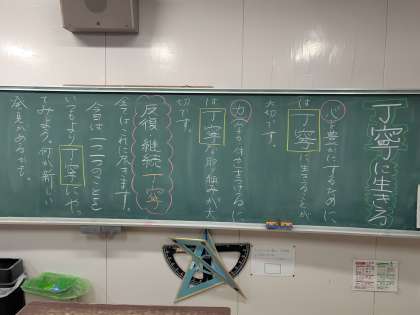 丁寧に生きる
心を豊かにするために、
は丁寧に生きることが
大切です。
力を身に付けるに
は丁寧な取り組みが大
切です。
反復 継続 丁寧
今はこれに尽きます。
今日は一つ一つのことを
いつもより丁寧にやっ
てみよう。何か新しい
発見があるかも。